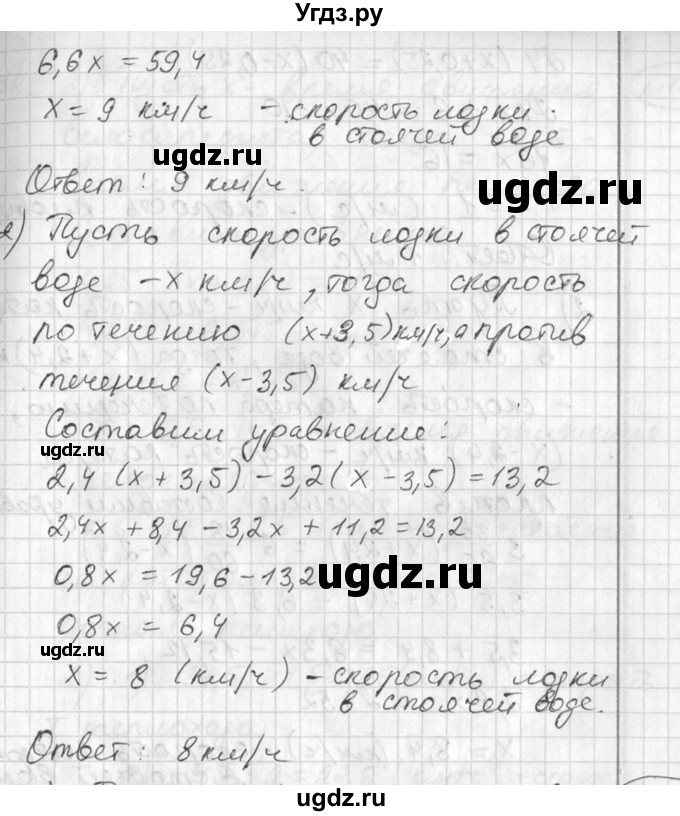 Угдз.ру
6,6x = 59,4
x = 9 км/ч - скорость лодки
в стоячей воде
ugdz.ru
ugdz.ru
Ответ: 9 км/ч.
ugdz.ru
Пусть скорость лодки в стоячей
воде - x км/ч, тогда скорость
по течению (x+3,5) км/ч, а против
течения (x-3,5) км/ч
Составим уравнение:
ugdz.ru
2,4 (x + 3,5) - 3,2 (x - 3,5) = 13,2
2,4x + 8,4 - 3,2x + 11,2 = 13,2
0,8x = 19,6 - 13,2
ugdz.ru
0,8x = 6,4
ugdz.ru
x = 8 (км/ч) - скорость лодки
в стоячей воде.
Ответ: 8 км/ч
ugdz.ru